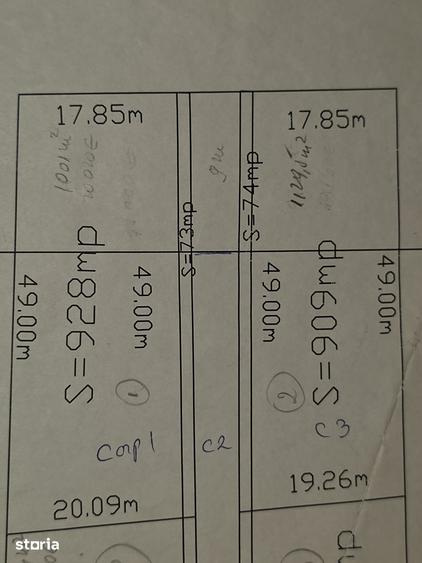 17.85m
17.85m
1001 m²
9 m
1129,5 m²
S=73mp
S=74mp
S=928mp
49.00m
49.00m
S=909mp
49.00m
49.00m
1
2
Corp 1
C2
C3
20.09m
19.26m
storia